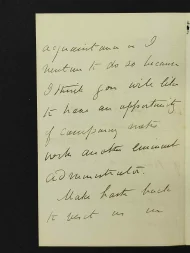 acquaintance as I
venture to do so because
I think you will like
to have an opportunity
of comparing notes
with another eminent
administrator.
Make haste back
to us